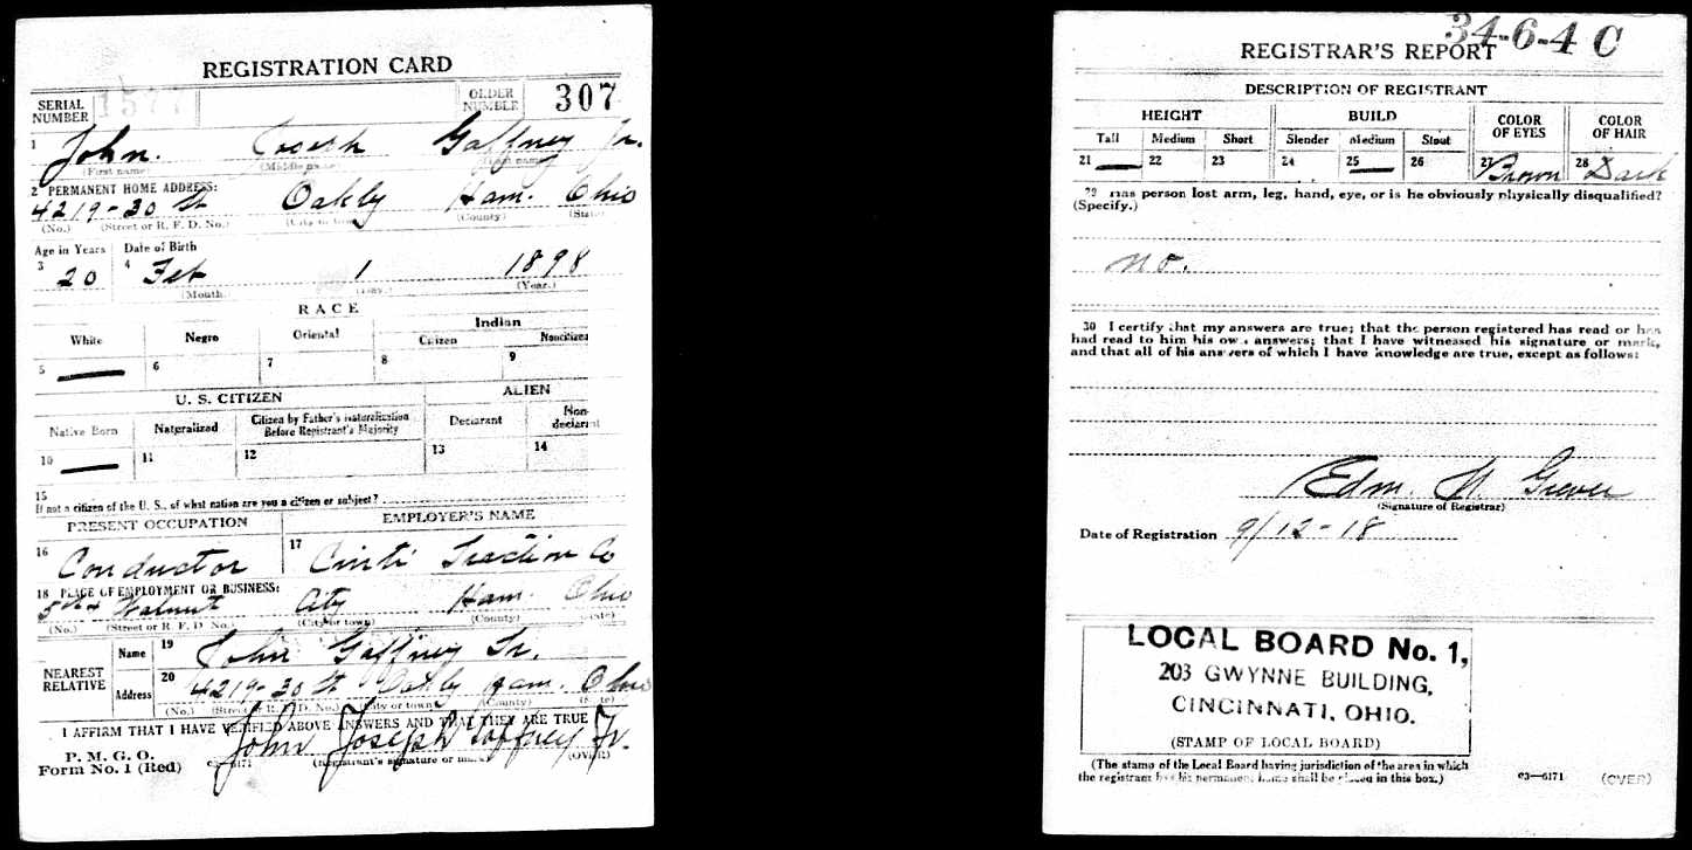 REGISTRATION CARD
SERIAL NUMBER 1577 ORDER NUMBER 307
1 John. Joseph Gaffney Jr.
(First name) (Middle name) (Last name)
2 PERMANENT HOME ADDRESS:
4219-30 St Oakly Ham. Ohio
(No.) (Street or R. F. D. No.) (City or town) (County) (State)
Age in Years Date of Birth
3 20 4 Feb 1 1898
(Month.) (Day.) (Year.)
RACE
White Negro Oriental Indian
Citizen Noncitizen
5 6 7 8 9
U. S. CITIZEN ALIEN
Native Born Naturalized Citizen by Father's Naturalization Before Registrant's Majority Declarant Non-declarant
10 11 12 13 14
15
If not a citizen of the U. S., of what nation are you a citizen or subject?
PRESENT OCCUPATION EMPLOYER'S NAME
16 Conductor 17 Cinti Traction Co
18 PLACE OF EMPLOYMENT OR BUSINESS:
5th & Walnut City Ham. Ohio
(No.) (Street or R. F. D. No.) (City or town) (County) (State)
NEAREST RELATIVE Name 19 John Gaffney Sr.
Address 20 4219-30 St Oakly Ham. Ohio
(No.) (Street or R. F. D. No.) (City or town) (County) (State)
I AFFIRM THAT I HAVE VERIFIED ABOVE ANSWERS AND THAT THEY ARE TRUE
P. M. G. O.
Form No. 1 (Red) 03—6171 John Joseph Gaffney Jr.
(Registrant's signature or mark) (OVER)
34-6-4 C
REGISTRAR'S REPORT
DESCRIPTION OF REGISTRANT
HEIGHT BUILD COLOR OF EYES COLOR OF HAIR
Tall Medium Short Slender Medium Stout
21 22 23 24 25 26 27 Brown 28 Dark
29 Has person lost arm, leg, hand, eye, or is he obviously physically disqualified?
(Specify.)
no.
30 I certify that my answers are true; that the person registered has read or has
had read to him his own answers; that I have witnessed his signature or mark,
and that all of his answers of which I have knowledge are true, except as follows:
Edm. H. Grever
(Signature of Registrar)
Date of Registration 9/12-18
LOCAL BOARD No. 1,
203 GWYNNE BUILDING,
CINCINNATI, OHIO.
(STAMP OF LOCAL BOARD)
(The stamp of the Local Board having jurisdiction of the area in which
the registrant has his permanent home shall be placed in this box.)
03—6171 (OVER)